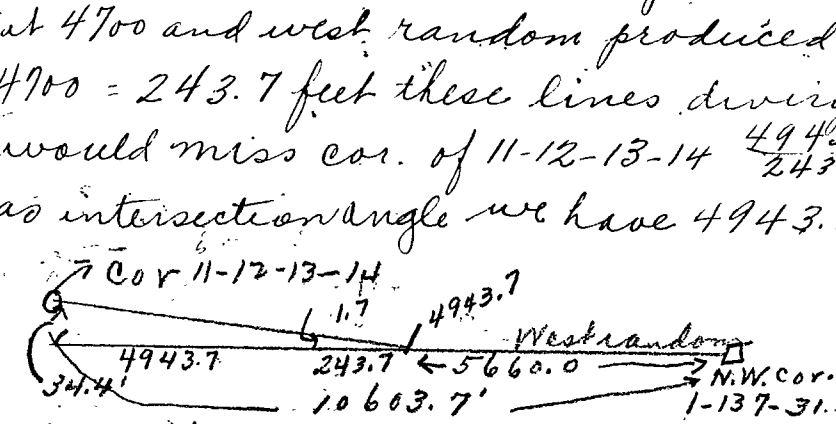 at 4700 and west random produced
4700 = 243.7 feet these lines
would miss cor. of 11-12-13-14
as intersection angle we have 4943.
Cor 11-12-13-14
1.7
4943.7
West random
4943.7 243.7 5660.0
34.4' 10603.7'
N.W. Cor.
1-137-31.